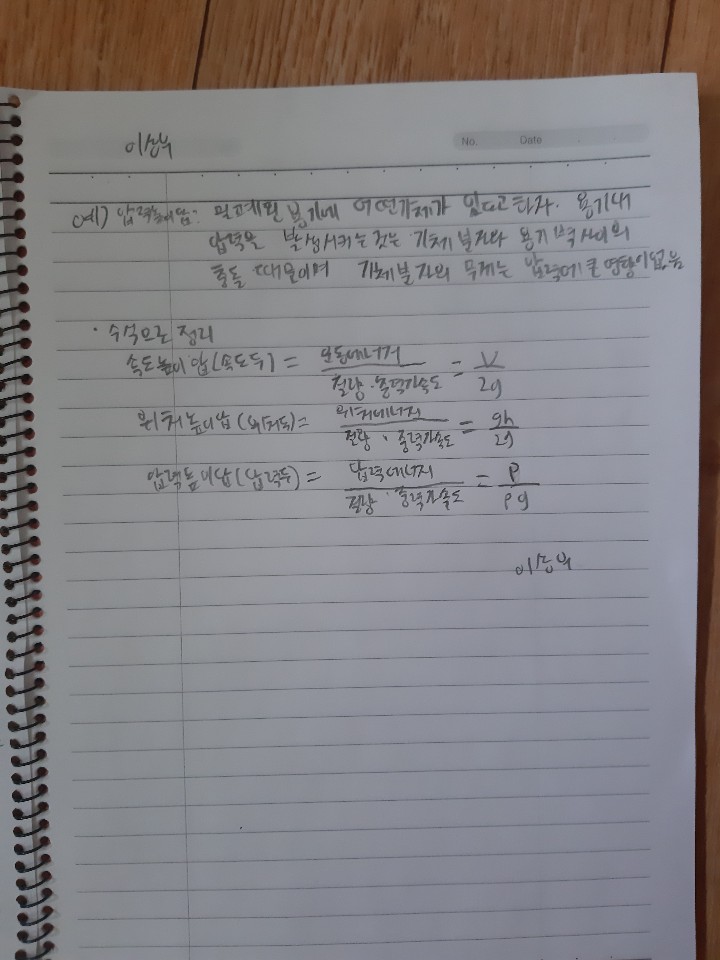 No. Date
예) 압력높이압: 밀폐된 용기에 어떤기체가 있다고하자. 용기내
압력을 발생시키는 것은 기체분자와 용기벽사이의
충돌 때문이며 기체분자의 무게는 압력에 큰영향이없음
· 수식으로 정리
속도높이압(속도두) = 운동에너지 / 질량·중력가속도 = V / 2g
위치높이압(위치두) = 위치에너지 / 질량·중력가속도 = gh / 2g
압력높이압(압력두) = 압력에너지 / 질량·중력가속도 = P / ρg